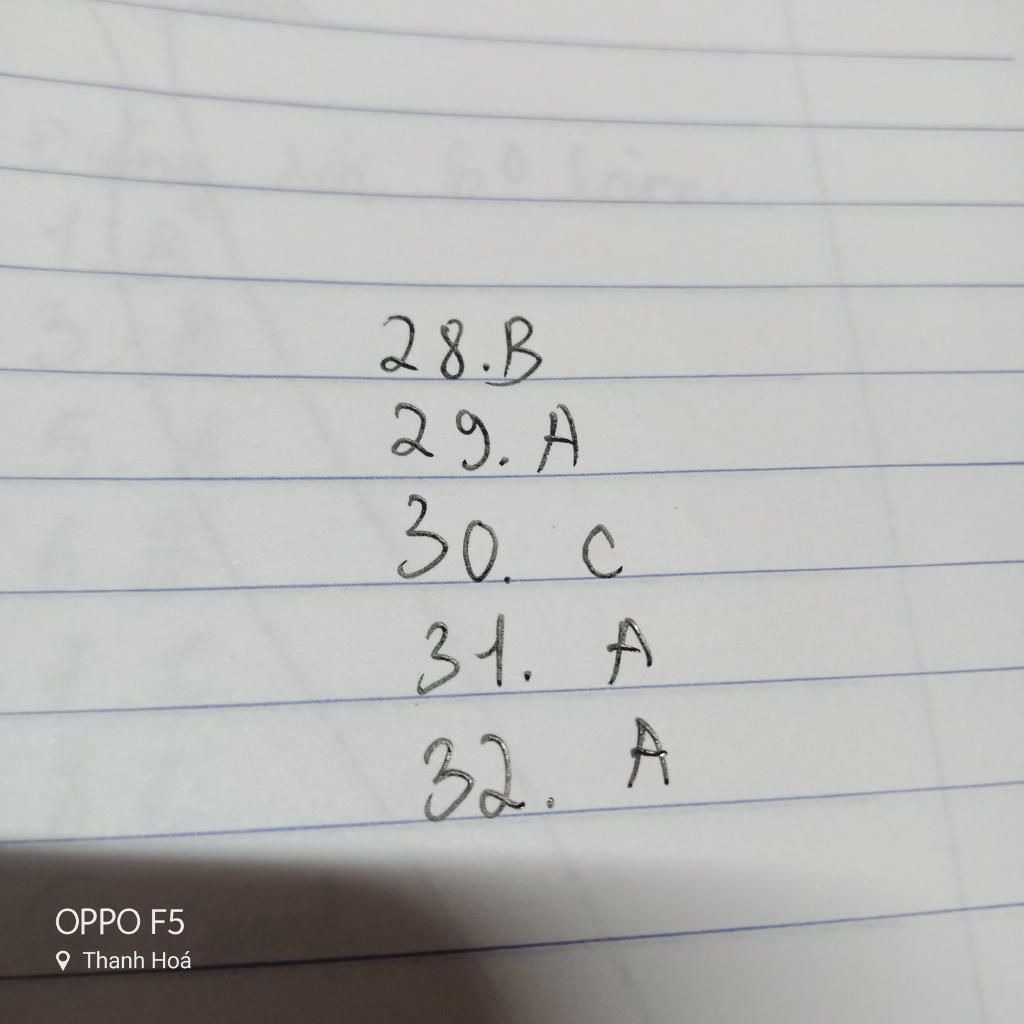 28.B
29. A
30. C
31. A
32. A
OPPO F5
Thanh Hoá